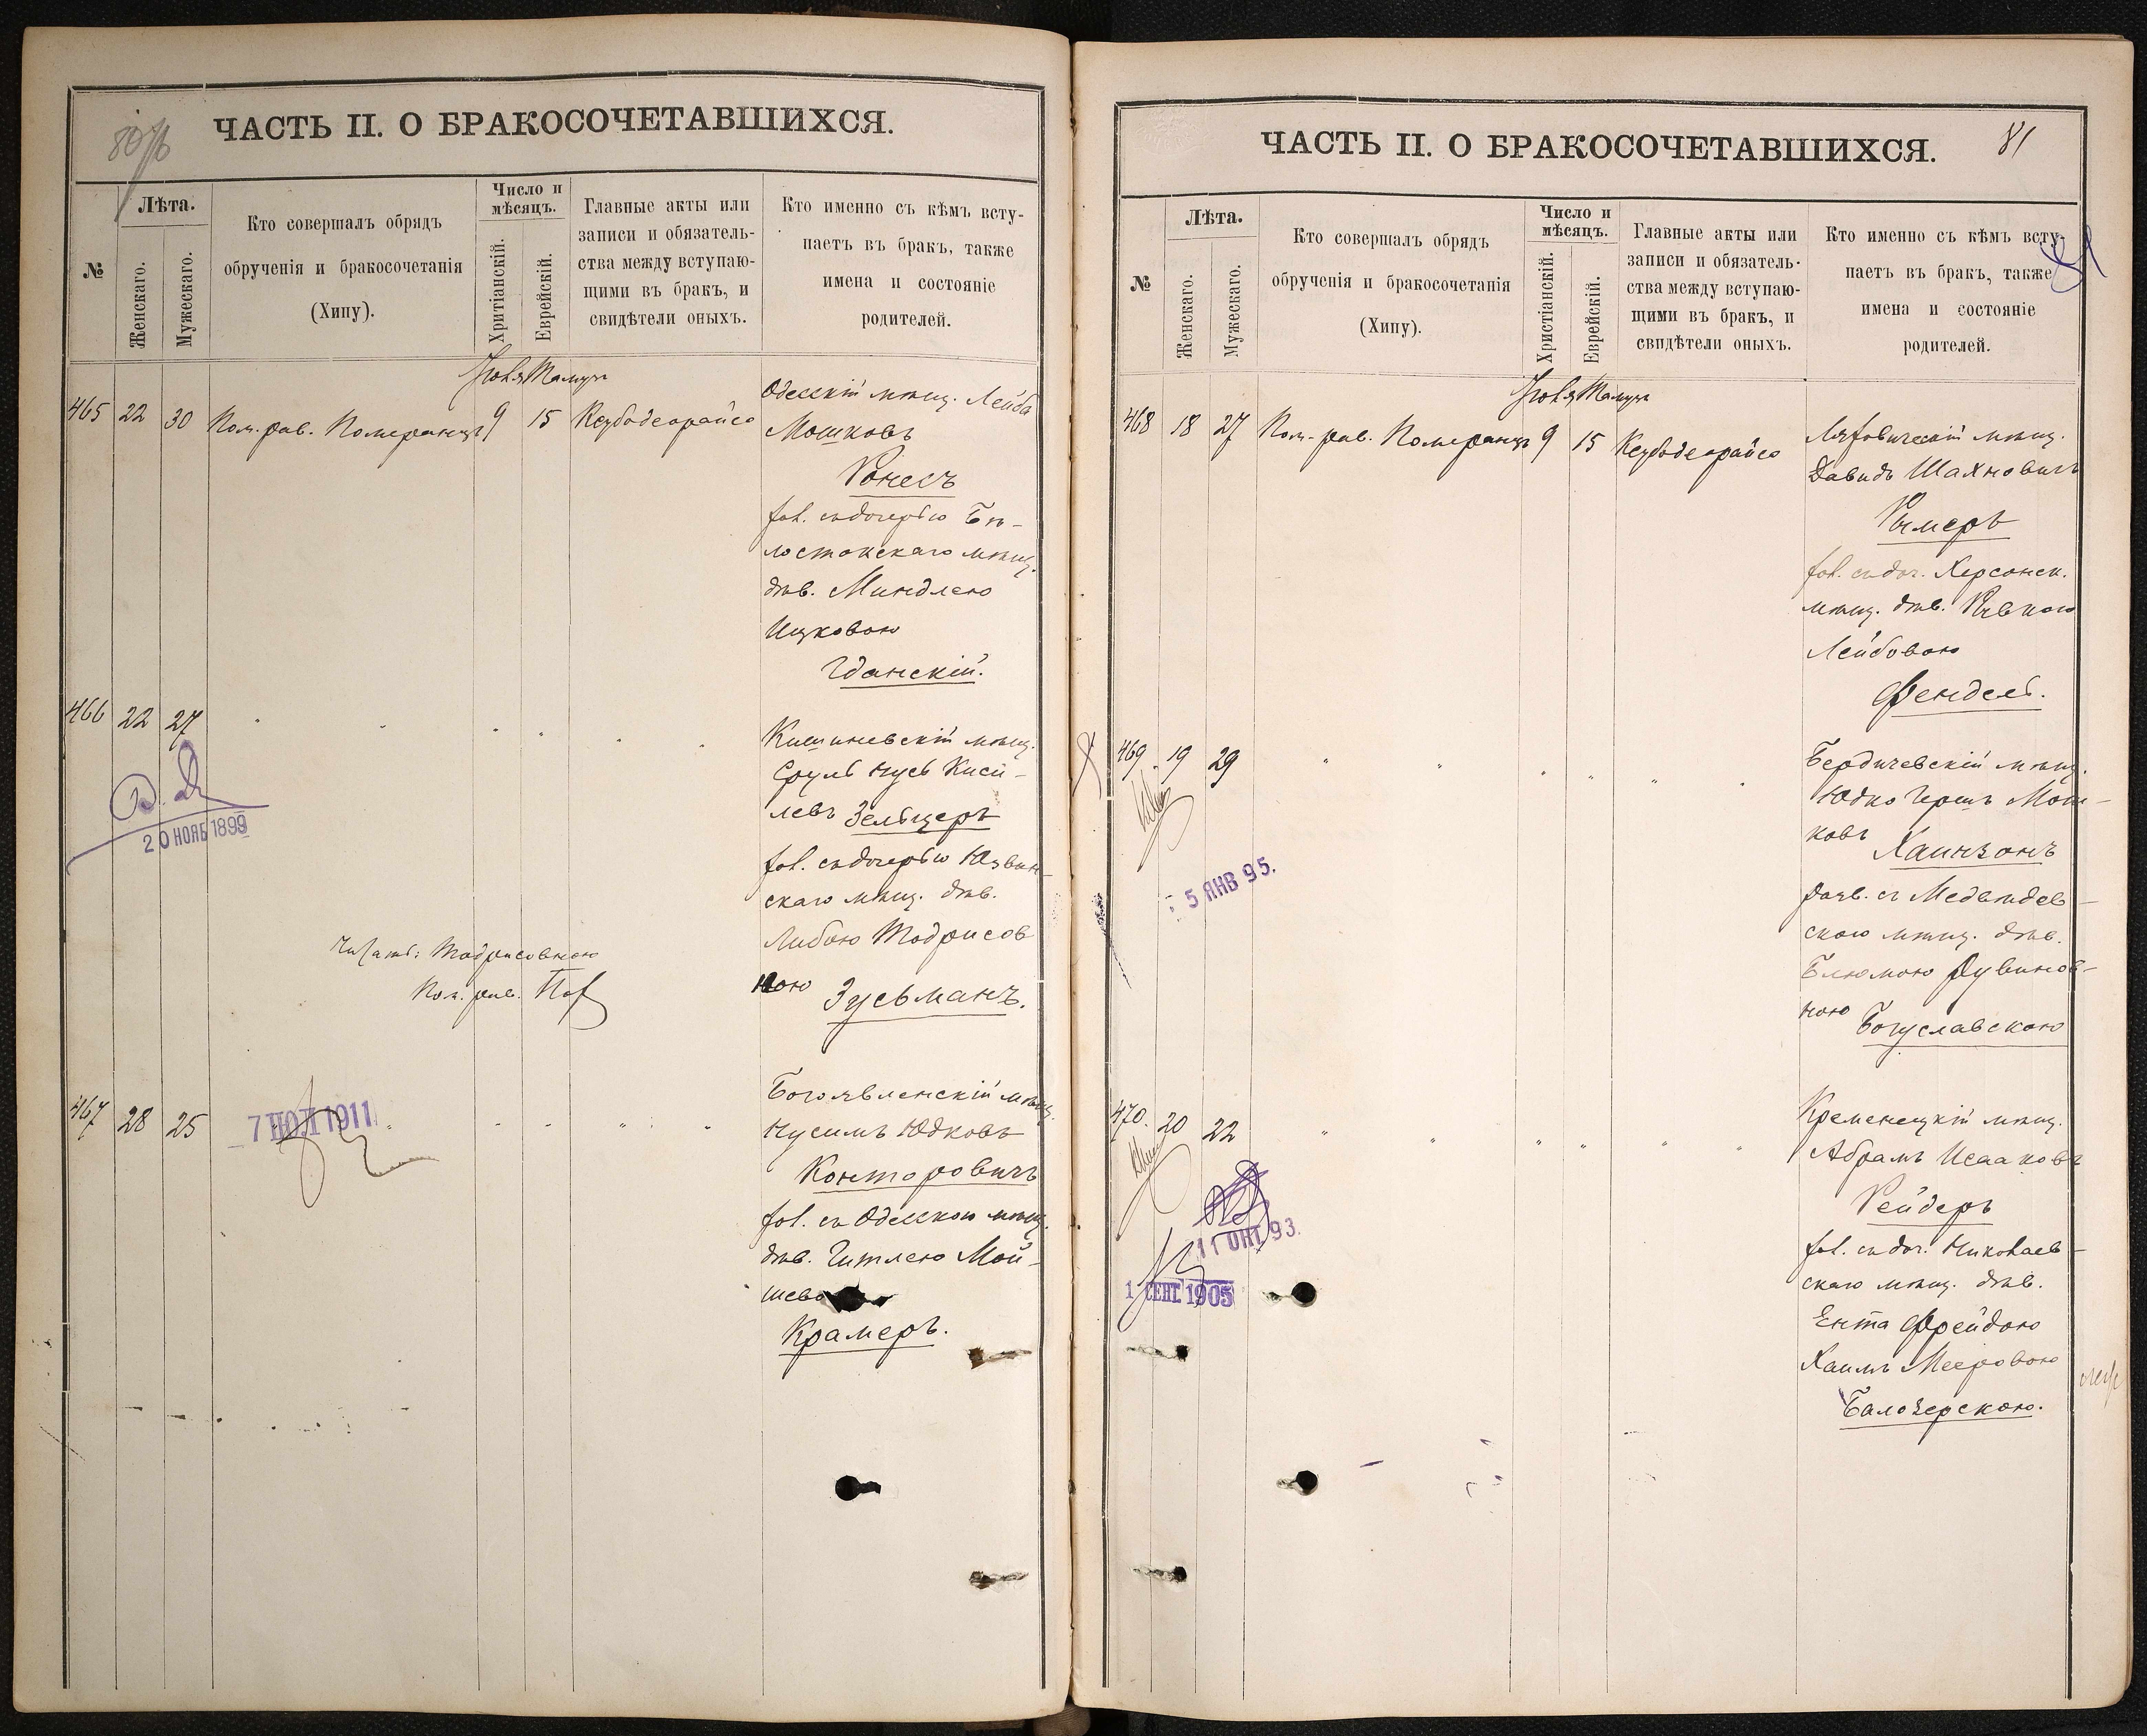 80/б
ЧАСТЬ II. О БРАКОСОЧЕТАВШИХСЯ.
№
Лѣта.
Женскаго.
Мужескаго.
Кто совершалъ обрядъ
обрученія и бракосочетанія
(Хипу).
Число и
мѣсяцъ.
Хритіанскій.
Еврейскій.
Главные акты или
записи и обязатель-
ства между вступаю-
щими въ бракъ, и
свидѣтели оныхъ.
Кто именно съ кѣмъ всту-
паетъ въ бракъ, также
имена и состояніе
родителей.
Іюля Тамузъ
465 22 30 Пом. рав. Померанцъ 9 15 Ксубодеорайсо
Одесскій мѣщ. Лейба
Мошковъ
Ронесъ
хол. съ дочерью Бѣ-
лостокскаго мѣщ.
дѣв. Миндлею
Ицковою
Гданскій.
466 22 27 " " " " " "
Кишиневскій мѣщ.
Сруль Нусъ Киси-
левъ Зельцеръ
хол. съ дочерью Юзвин-
скаго мѣщ. дѣв.
Либою Тодрисов
ною Зусьманъ.
20 НОЯБ 1899
Читать: Тодрисовною
Пом. рав.
467 28 25 " " " " "
7 ІЮЛ 1911
Богоявленскій мѣщ.
Нусимъ Юдковъ
Конторовичъ
хол. съ Одесскою мѣщ.
дѣв. Гитлею Мой-
шево
Крамеръ.
81
ЧАСТЬ II. О БРАКОСОЧЕТАВШИХСЯ.
81
№
Лѣта.
Женскаго.
Мужескаго.
Кто совершалъ обрядъ
обрученія и бракосочетанія
(Хипу).
Число и
мѣсяцъ.
Христіанскій.
Еврейскій.
Главные акты или
записи и обязатель-
ства между вступаю-
щими въ бракъ, и
свидѣтели оныхъ.
Кто именно съ кѣмъ всту-
паетъ въ бракъ, также
имена и состояніе
родителей.
Іюля Тамузъ
468 18 27 Пом. рав. Померанцъ 9 15 Ксубодеорайсо
Ляховическій мѣщ.
Давидъ Шахновичъ
Рымеръ
хол. съ доч. Херсонск.
мѣщ. дѣв. Ривкою
Лейбовою
Фендель.
469 19 29 " " " " " "
5 ЯНВ 95.
Бердичевскій мѣщ.
Юдко Гершъ Мош-
ковъ Хаинзонъ
разв. съ Медвѣдев-
скою мѣщ. дѣв.
Блюмою Рувинов-
ною Богуславскою
470. 20 22 " " " " " "
11 ОКТ. 93.
1 СЕНТ. 1905
Кременецкій мѣщ.
Абрамъ Исааковъ
Рейдеръ
хол. съ доч. Николаев-
скаго мѣщ. дѣв.
Ента Фрейдою
Хаимъ Мееровою
Балозерскою.